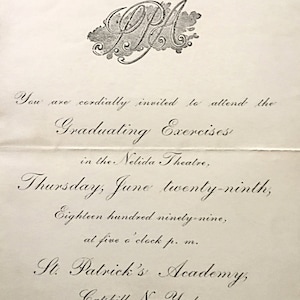 SPA
You are cordially invited to attend the
Graduating Exercises
in the Nelida Theatre,
Thursday, June twenty-ninth,
Eighteen hundred ninety-nine,
at five o'clock p. m.
St. Patrick's Academy,
Catskill, N. York.